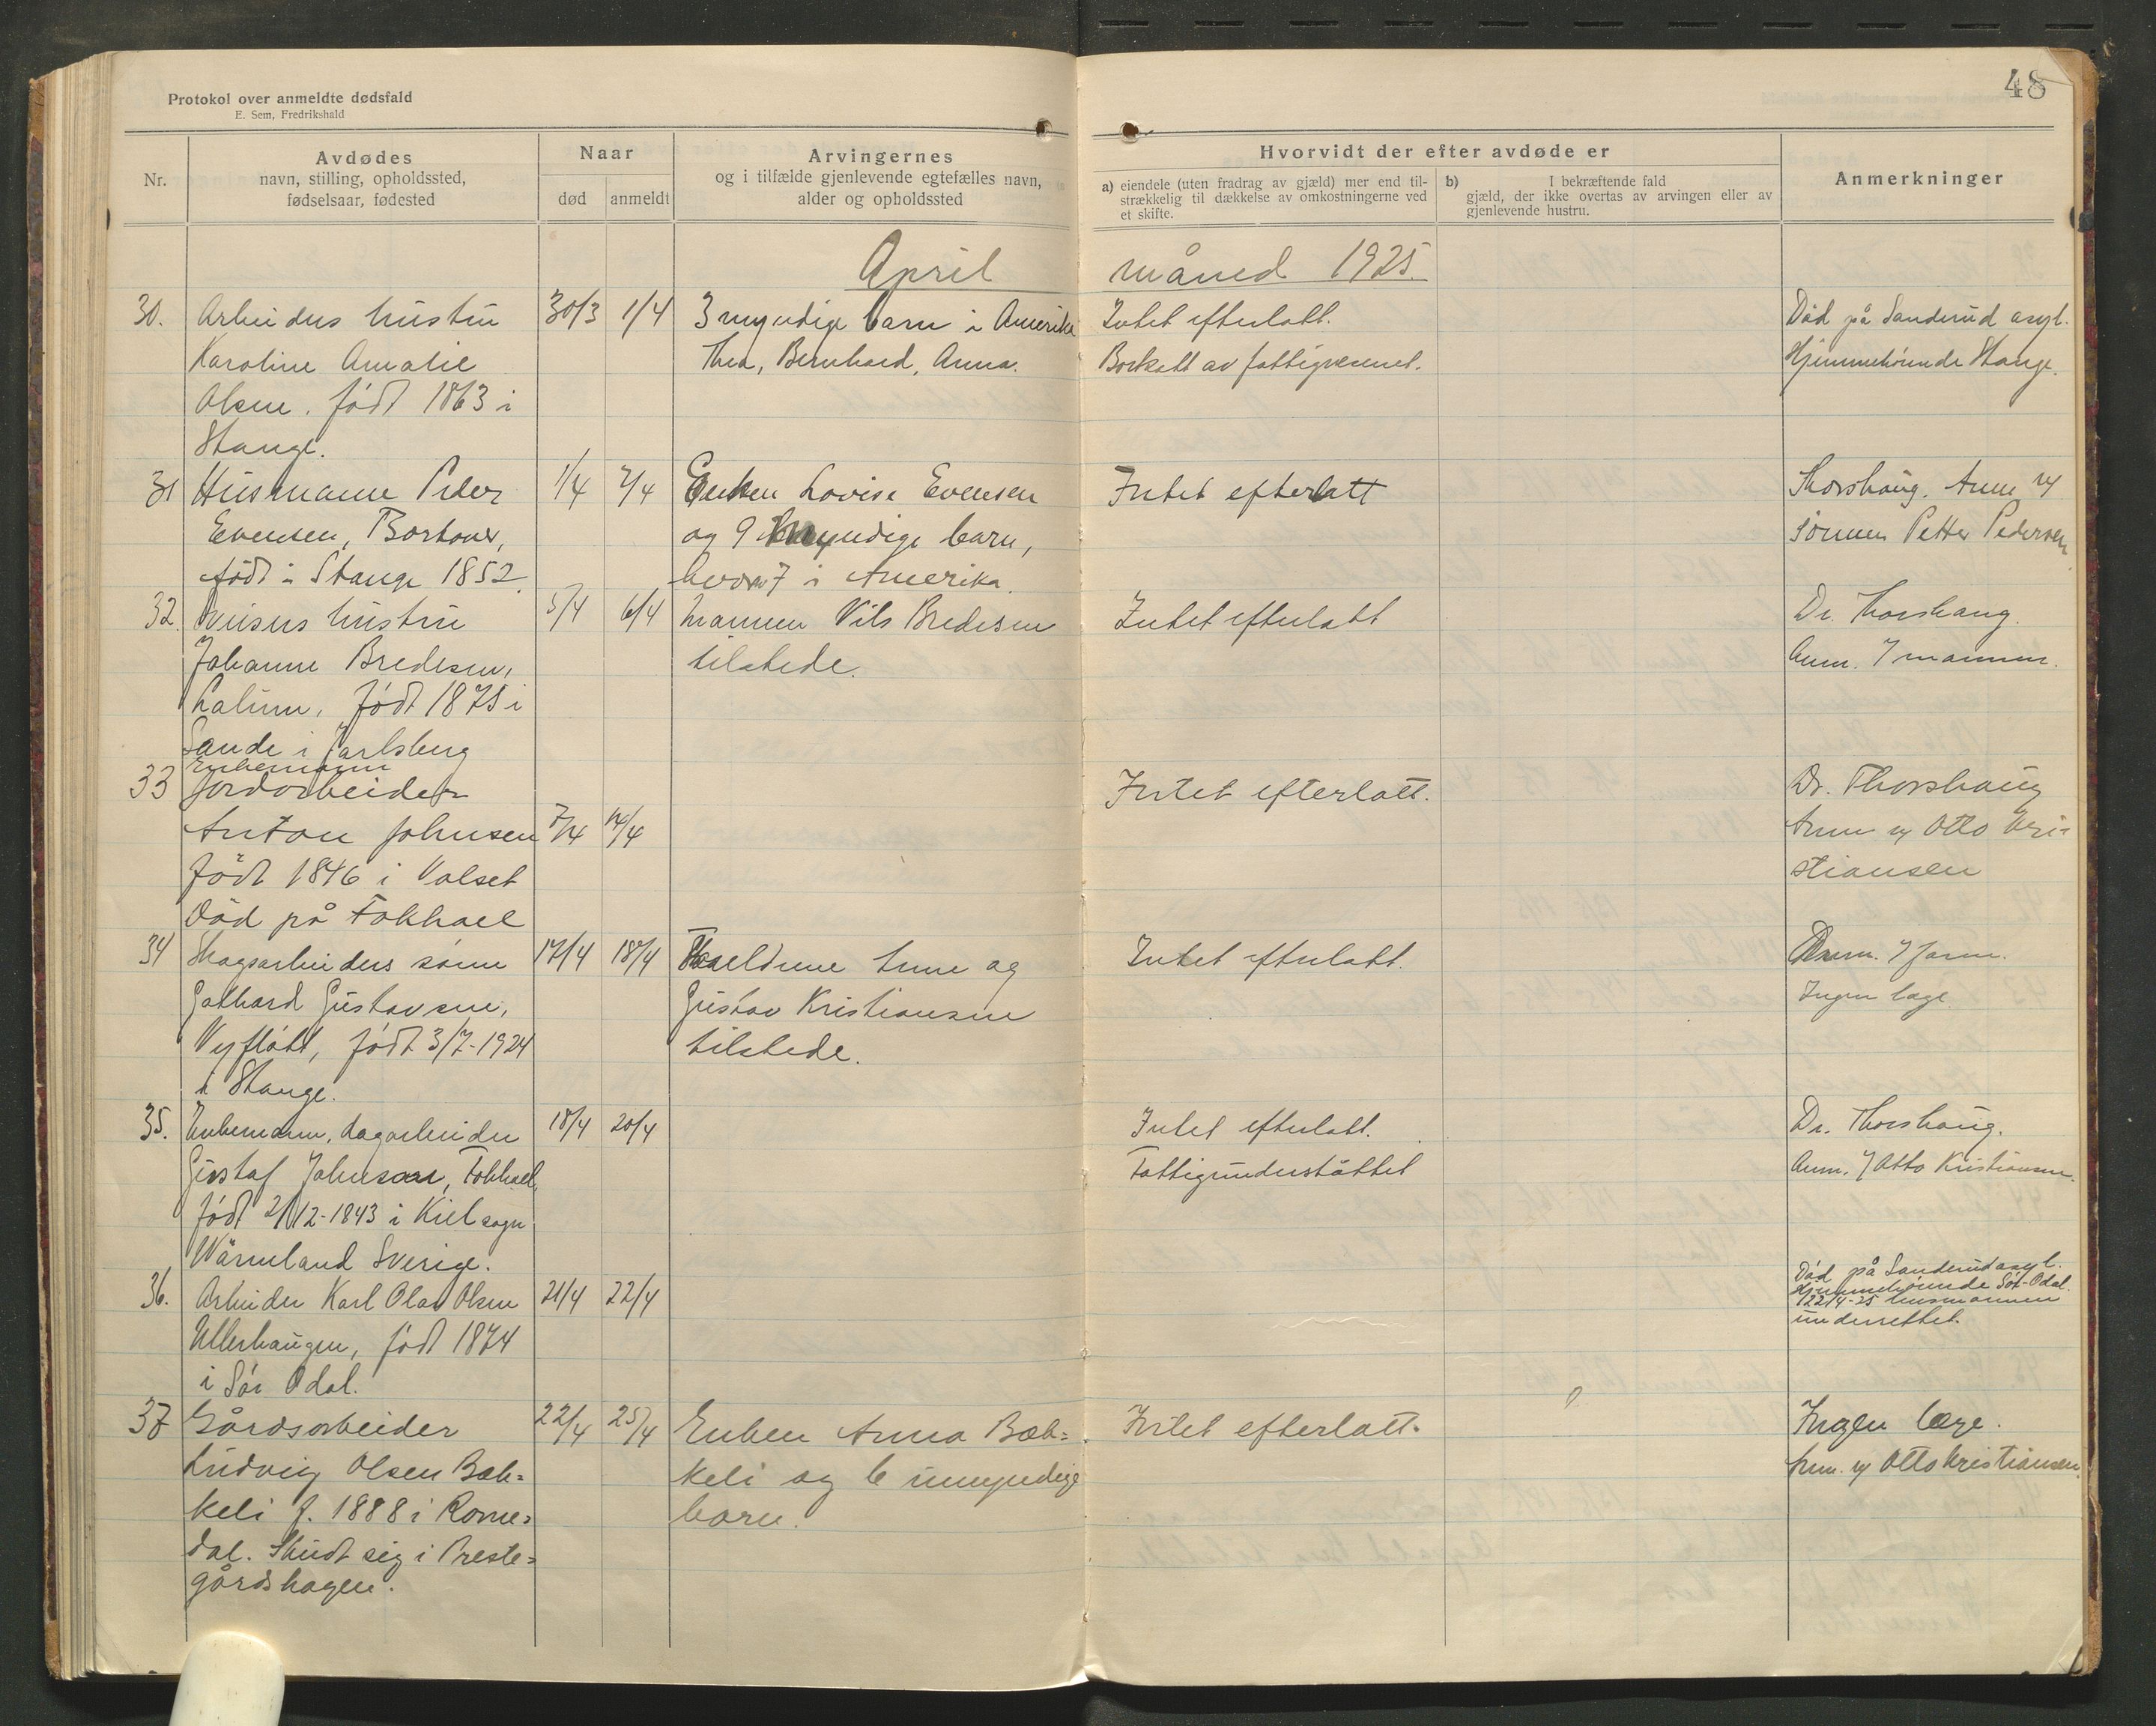 48
Protokol over anmeldte dødsfald
E. Sem, Fredrikshald
Nr.
Avdødes
navn, stilling, opholdssted,
fødselsaar, fødested
Naar
død
anmeldt
Arvingernes
og i tilfælde gjenlevende egtefælles navn,
alder og opholdssted
Hvorvidt der efter avdøde er
a) eiendele (uten fradrag av gjæld) mer end til-
strækkelig til dækkelse av omkostningerne ved
et skifte.
b) I bekræftende fald
gjæld, der ikke overtas av arvingen eller av
gjenlevende hustru.
Anmerkninger
April måned 1925.
30. Arbeiders hustru 30/3 1/4 3 myndige barn i Amerika Intet efterlatt. Død på Sanderud asyl.
Karoline Amalie Thea, Bernhard, Anna. Bortsatt av fattigvesenet. Hjemmehørende Stange.
Olsen. født 1863 i
Stange.
31 Husmann Peder 1/4 7/4 Enken Lovise Evensen Intet efterlatt Thorshaug. Anm. v/
Evensen, og 9 myndige barn, sønnen Petter Pedersen
født i Stange 1852. hvorav 7 i Amerika.
32. hustru 5/4 6/4 Mannen Nils Bredesen Intet efterlatt Dr. Thorshaug.
Johanne Bredesen, tilstede. Anm. v/ mannen.
Lalum, født 1875 i
Sande i Jarlsberg
Enkemann
33 Jordarbeider Intet efterlatt. Dr. Thorshaug
Anton Johnsen 7/4 14/4 Anm v/ Otto Kri-
født 1846 i Valset stiansen
Død på Fokhoel
34 Skogsarbeiders sønn 17/4 18/4 Foreldrene Anne og Intet efterlatt. Anm. v/ faren.
Gothard Gustavsen, Gustav Kristiansen Ingen læge
Nyfløtt, født 3/7-1924 tilstede.
i Stange.
35. Enkemann, dagarbeider 18/4 20/4 Intet efterlatt. Dr. Thorshaug.
Gustaf Johnsen, Fokhoel, Fattigunderstøttet Anm. v/ Otto Kristiansen.
født 21/12-1843 i Kiel sogn
Wärmland Sverige.
36. Arbeider Karl Olav Olsen 21/4 22/4 Død på Sanderud asyl.
Ullerhaugen, født 1874 Hjemmehørende Sør-Odal.
i Sør Odal. 22/4-25 lensmannen
underrettet.
37 Gårdsarbeider 22/4 25/4 Enken Anna Bæk= Intet efterlatt. Ingen læge.
Ludvig Olsen Bæk= keli og 6 umyndige Anm. v/ Otto Kristiansen.
keli f. 1888 i Rome= barn.
dal. Skudt sig i Preste=
gårdshagen.